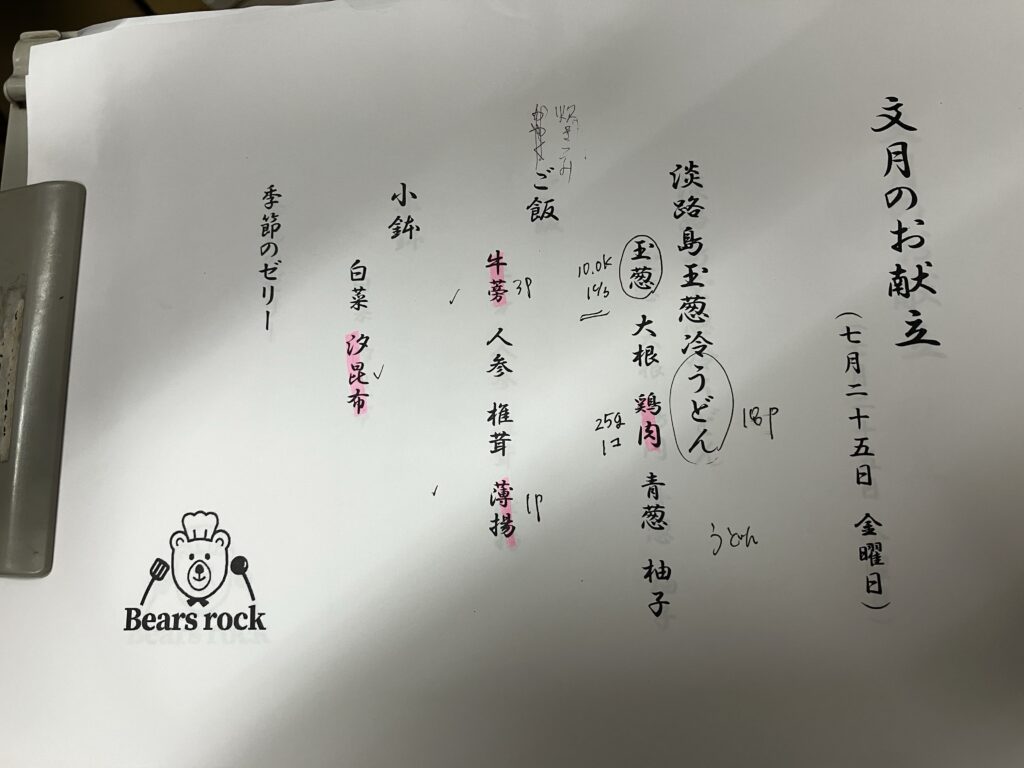 文月のお献立
(七月二十五日 金曜日)
淡路島玉葱冷うどん
18p
うどん
玉葱 大根 鶏肉 青葱 柚子
10.0k
25g
1コ
炊きこみ
ご飯
牛蒡 人参 椎茸 薄揚
3p
1p
小鉢
白菜 汐昆布
季節のゼリー
Bears rock